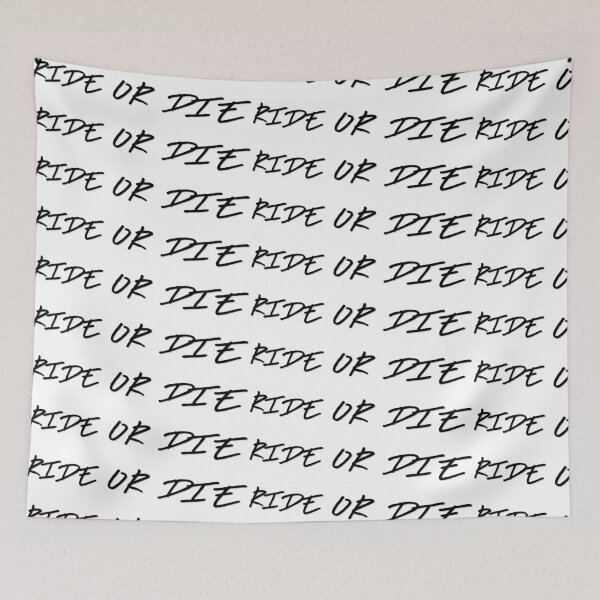 OR DIE RIDE O
RIDE OR DIE RIDE OR DIE RIDE O
RIDE OR DIE RIDE OR DIE RIDE O
RIDE OR DIE RIDE OR DIE RIDE O
RIDE OR DIE RIDE OR DIE RIDE O
RIDE OR DIE RIDE OR DIE RIDE O
RIDE OR DIE RIDE OR DIE RIDE O
RIDE OR DIE RIDE OR DIE RIDE O
RIDE OR DIE RIDE OR DIE RIDE O
RIDE OR DIE RIDE OR DIE RIDE
RIDE